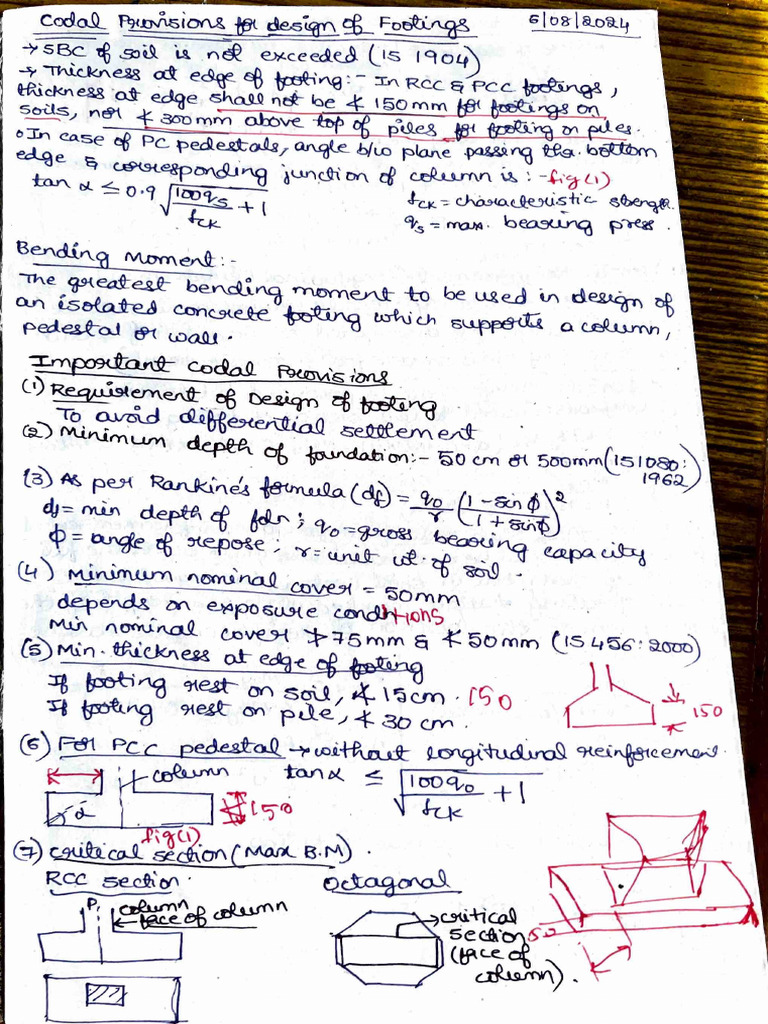 Codal Provisions for design of Footings 5/08/2024
→ SBC of soil is not exceeded (IS 1904)
→ Thickness at edge of footing:- In RCC & PCC footings,
thickness at edge shall not be ≮ 150mm for footings on
soils, nor ≮ 300mm above top of piles for footing on piles.
o In case of PC pedestals, angle b/w plane passing thr. bottom
edge & corresponding junction of column is:- fig(1)
tan α ≤ 0.9 √(100qs/fck + 1) fck = characteristic strength.
qs = max. bearing press.
Bending Moment:-
The greatest bending moment to be used in design of
an isolated concrete footing which supports a column,
pedestal or wall.
Important Codal Provisions
(1) Requirement of Design of footing
To avoid differential settlement
(2) Minimum depth of foundation:- 50 cm or 500mm (IS 1080:
1962)
(3) As per Rankine's formula (df) = q0/r (1 - sinϕ / 1 + sinϕ)²
df = min depth of fdn; q0 = gross bearing capacity
ϕ = angle of repose. r = unit wt. of soil
(4) Minimum nominal cover = 50mm
depends on exposure conditions
Min nominal cover ≯ 75mm & ≮ 50mm (IS 456:2000)
(5) Min. thickness at edge of footing
If footing rest on soil, ≮ 15cm. 150
If footing rest on pile, ≮ 30 cm.
150
(6) For PCC pedestal → without longitudinal reinforcement.
column tan α ≤ √(100q0/fck + 1)
α 150
fig(1)
(7) Critical section (Max B.M).
RCC section. Octagonal
P. column
face of column
critical
section
(face of
column).
50